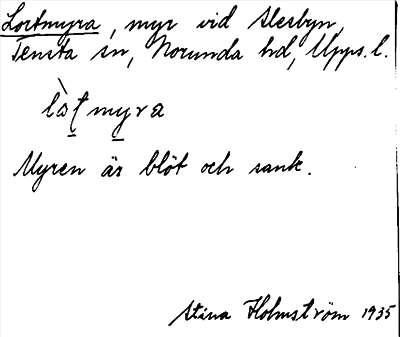 Lortmyra, myr vid Alesbyn,
Tensta sn, Norunda hd, Upps. l.
Myren är blöt och sank.
Stina Holmström 1935